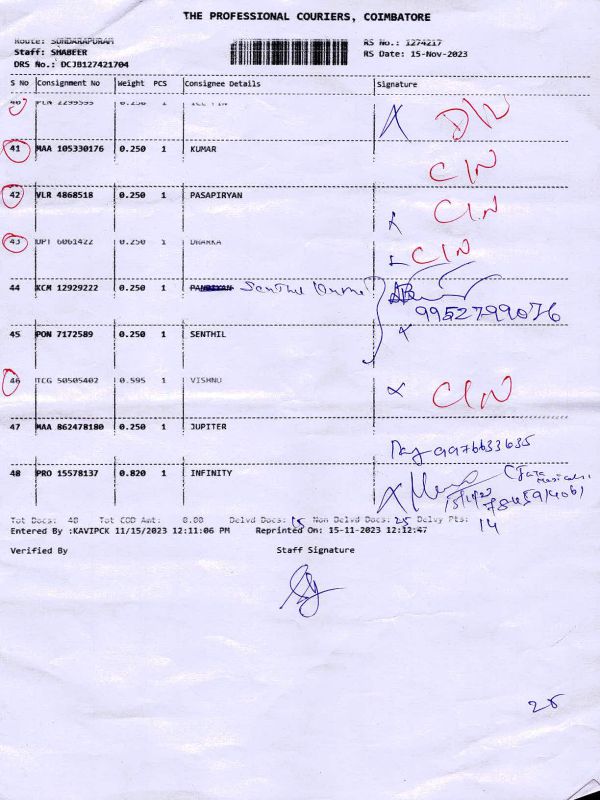 THE PROFESSIONAL COURIERS, COIMBATORE
Route: SUNDARAPURAM
RS No.: 1274217
Staff: SHABEER
RS Date: 15-Nov-2023
DRS No.: DCJB127421704
S No Consignment No Weight PCS Consignee Details Signature
40 0.250 1
41 MAA 105330176 0.250 1 KUMAR CIN
42 VLR 4868518 0.250 1 PASAPIRYAN CIN
43 DPT 6061422 0.250 1 CIN
44 KCM 12929222 0.250 1 Senthil
9952799076
45 PON 7172589 0.250 1 SENTHIL
46 TCG 50505402 0.595 1 VISHNU CIN
47 MAA 862478180 0.250 1 JUPITER
9976633635
48 PRO 15578137 0.820 1 INFINITY
15/11/23
Tot Docs: 40 Tot COD Amt: 0.00 Delvd Docs: 15 Non Delvd Docs: 25 Delvy Pts: 14
Entered By :KAVIPCK 11/15/2023 12:11:06 PM Reprinted On: 15-11-2023 12:12:47
Verified By Staff Signature